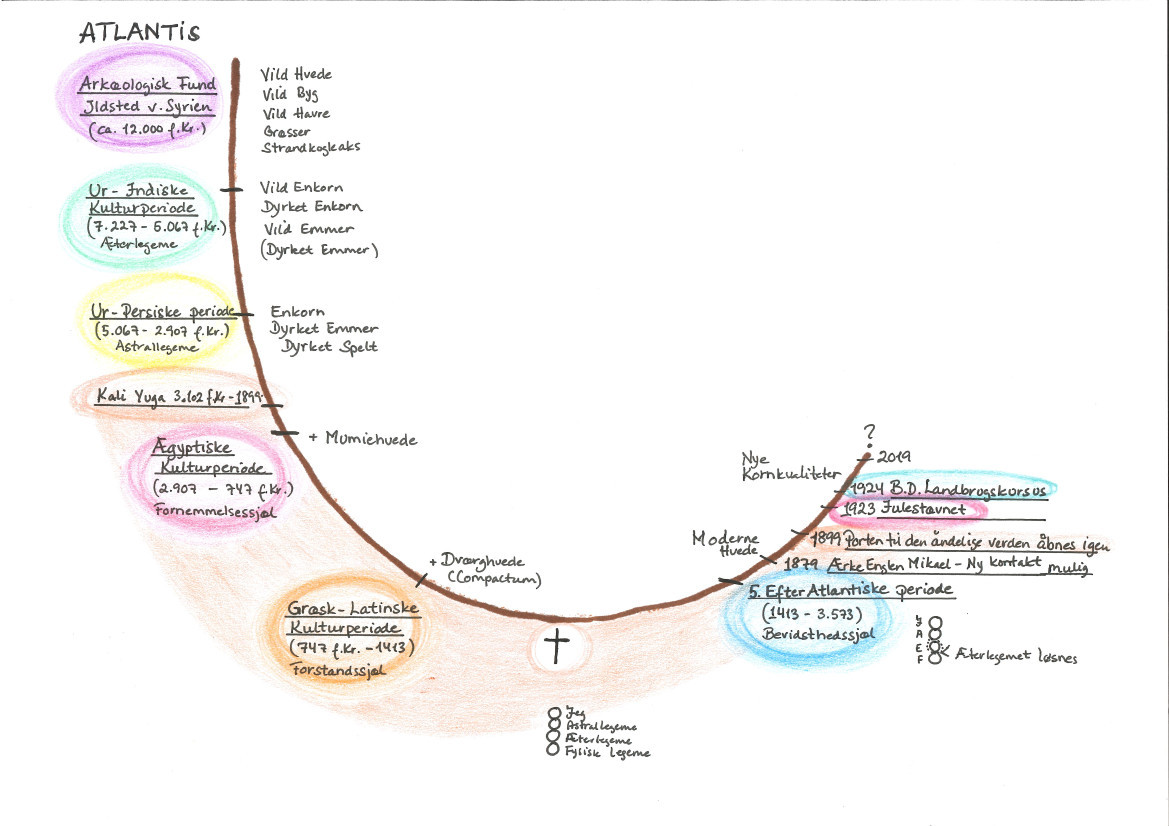 ATLANTIS
Arkæologisk Fund
Ildsted v. Syrien
(ca. 12.000 f.Kr.)
Vild Hvede
Vild Byg
Vild Havre
Græsser
Strandkogleaks
Ur-Indiske
Kulturperiode
(7.227 - 5.067 f.Kr.)
Æterlegeme
Vild Enkorn
Dyrket Enkorn
Vild Emmer
(Dyrket Emmer)
Ur-Persiske periode
(5.067 - 2.907 f.Kr.)
Astrallegeme
Enkorn
Dyrket Emmer
Dyrket Spelt
Kali Yuga 3.102 f.Kr-1899
+ Mumiehvede
Ægyptiske
Kulturperiode
(2.907 - 747 f.Kr.)
Fornemmelsessjæl
+ Dværghvede
(Compactum)
Græsk-Latinske
Kulturperiode
(747 f.Kr. -1413)
Forstandssjæl
Jeg
Astrallegeme
Æterlegeme
Fysisk Legeme
?
2019
Nye
Kornkvaliteter
1924 B.D. Landbrugskursus
1923 Julestævnet
Moderne
Hvede
1899 Porten til den åndelige verden åbnes igen
1879 Ærke Englen Mikael - Ny kontakt mulig
5. EfterAtlantiske periode
(1413 - 3.573)
Bevidsthedssjæl
J
A
E
F
Æterlegemet løsnes